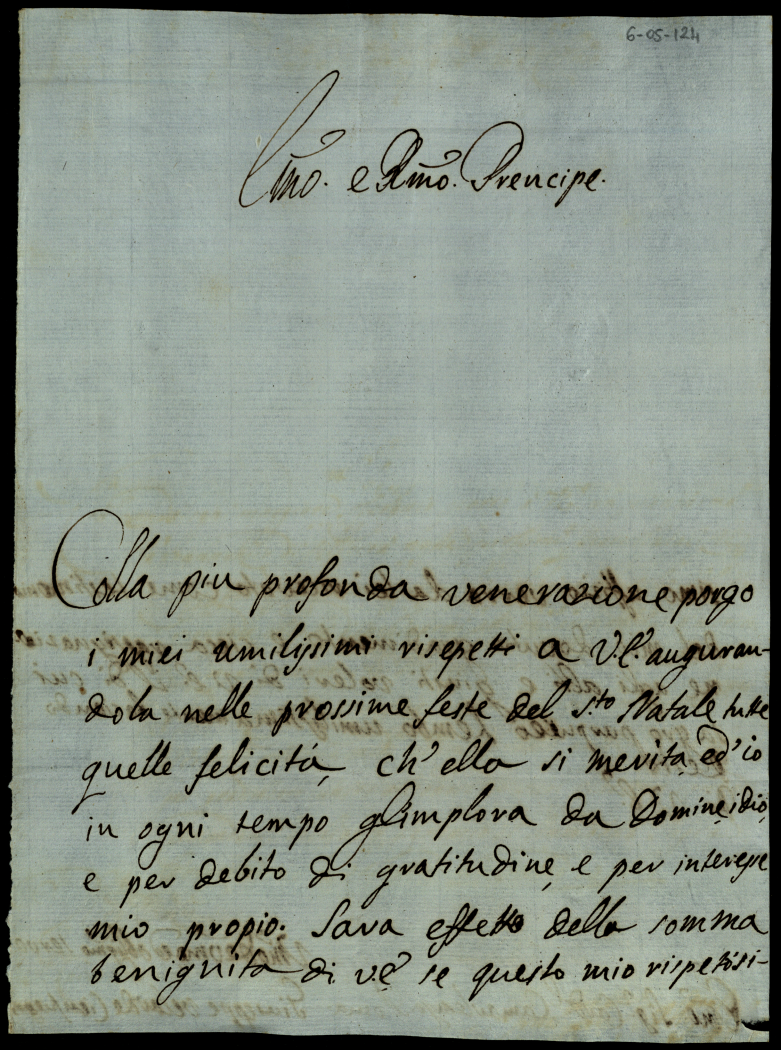 6-05-124
Emo. e Rmo. Prencipe.
Colla piu profonda venerazione porgo
i miei umilissimi risepetti a V.E. auguran-
dola nelle prossime feste del S.to Natale tutte
quelle felicitá, ch'ella si merita, ed'io
in ogni tempo gl'implora da Domineidio,
e per debito di gratitudine, e per interesse
mio propio. Sara effetto della somma
benignita di V.E. se questo mio rispetosi-